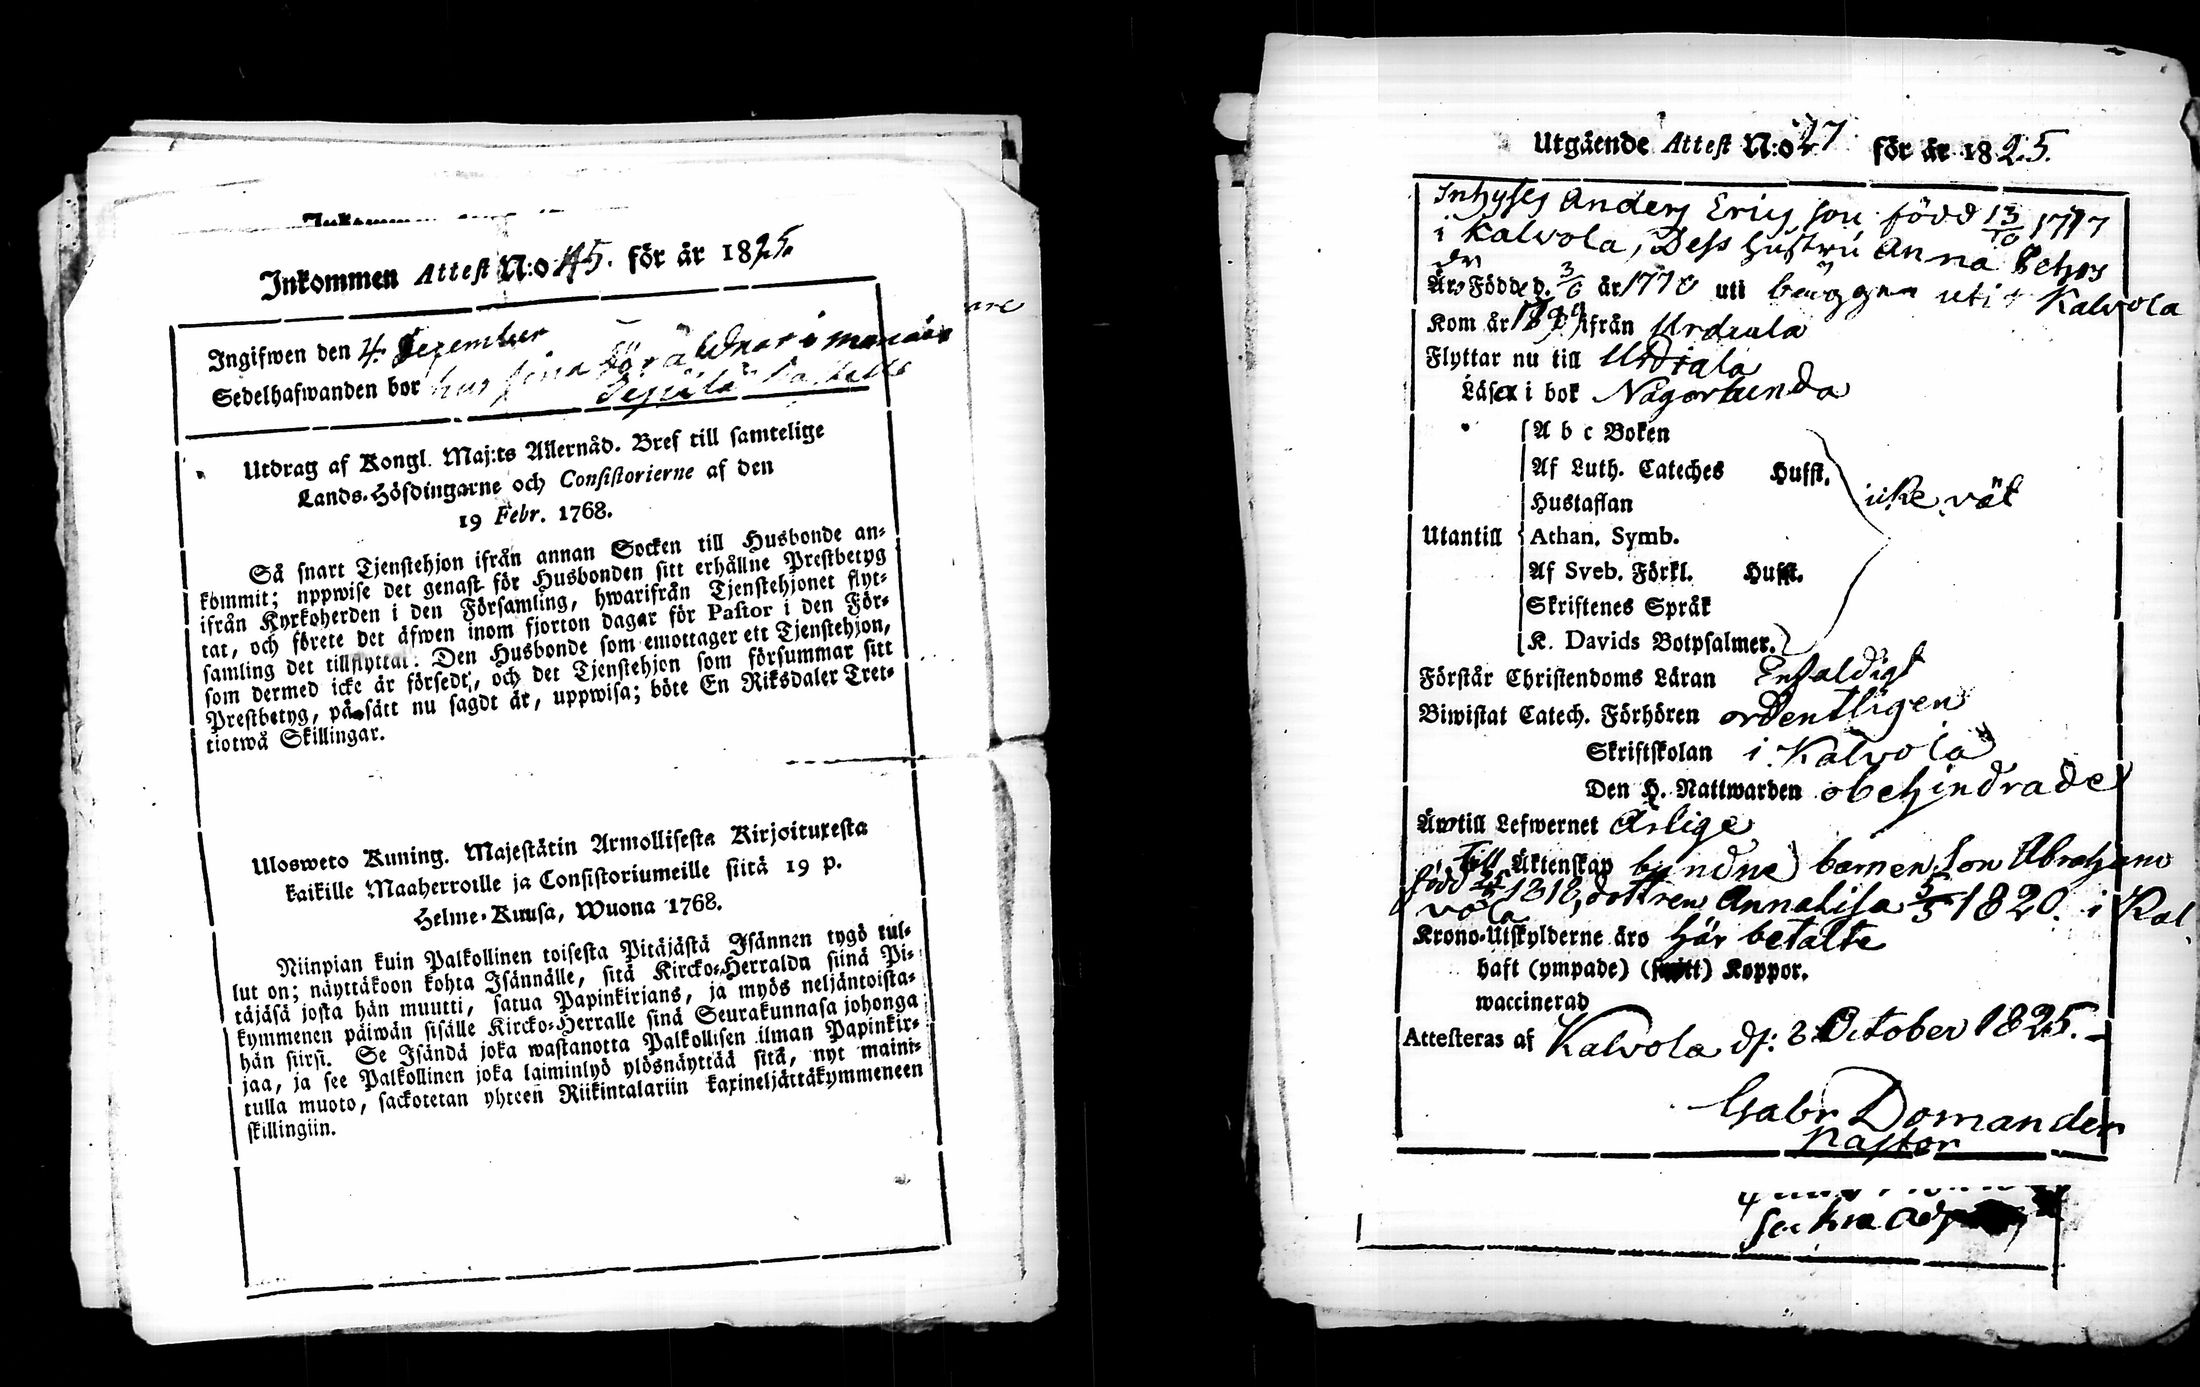 Inkommen Attest N:o 45. för år 1825.
Ingifwen den 4. December
Sedelhafwanden bor hos sina föräldrar i
Utdrag af Kongl. Maj:ts Allernåd. Bref till samtelige
Lands-Höfdingarne och Consistorierne af den
19 Febr. 1768.
Så snart Tjenstehjon ifrån annan Socken till Husbonde an-
kommit; uppwise det genast för Husbonden sitt erhållne Prestbetyg
ifrån Kyrkoherden i den Församling, hwarifrån Tjenstehjonet flyt-
tat, och förete det äfwen inom fjorton dagar för Pastor i den För-
samling det tillflyttat: Den Husbonde som emottager ett Tjenstehjon,
som dermed icke är försedt, och det Tjenstehjon som försummar sitt
Prestbetyg, på sätt nu sagdt är, uppwisa; böte En Riksdaler Tret-
tiotwå Skillingar.
Ulosweto Kuning. Majestätin Armollisesta Kirjoituxesta
kaikille Maaherroille ja Consistoriumeille siitä 19 p.
Helme-Kuusa, Wuona 1768.
Niinpian kuin Palkollinen toisesta Pitäjästä Isännen tygö tul-
lut on; näyttäkoon kohta Isännälle, sitä Kircko-Herralda siinä Pi-
täjäsä josta hän muutti, satua Papinkirjans, ja myös neljäntoista-
kymmenen päiwän sisälle Kircko-Herralle sinä Seurakunnasa johonga
hän siirsi. Se Isändä joka wastanotta Palkollisen ilman Papinkir-
jaa, ja see Palkollinen joka laiminlyö ylösnäyttää sitä, nyt mainit-
tulla muoto, sackotetan yhteen Riikintalariin kaxineljättäkymmeneen
skillingiin.
Utgäende Attest N:o 27 för år 1825.
Inhyses Anders Ericsson född 13/10 1777
i Kalvola, Dess hustru Anna Peters
dr
Äro Födde d. 3/6 år 1770 uti beggge uti Kalvola
Kom år ifrån Urdiala
Flyttar nu till Urdiala
Läsa i bok Någorlunda
A b c Boken
Af Luth. Cateches Hufst.
Hustaflan icke väl
Utantill Athan. Symb.
Af Sveb. Förkl. Hufst.
Skriftenes Språk
K. Davids Botpsalmer.
Förstår Christendoms Läran Enfaldigt
Biwistat Catech. Förhören ordentligen
Skriftskolan i Kalvola
Den H. Nattwarden obehindrade
Äro till Lefwernet ärlige
Till Äktenskap bundne barnen Son Abraham
född 1818, dottren Annalisa 5/5 1820. i Kal
vola
Krono-Utskylderne äro här betalte
haft (ympade) Koppor.
waccinerad
Attesteras af Kalvola d: 8 October 1825.
Gabr Domander
Pastor